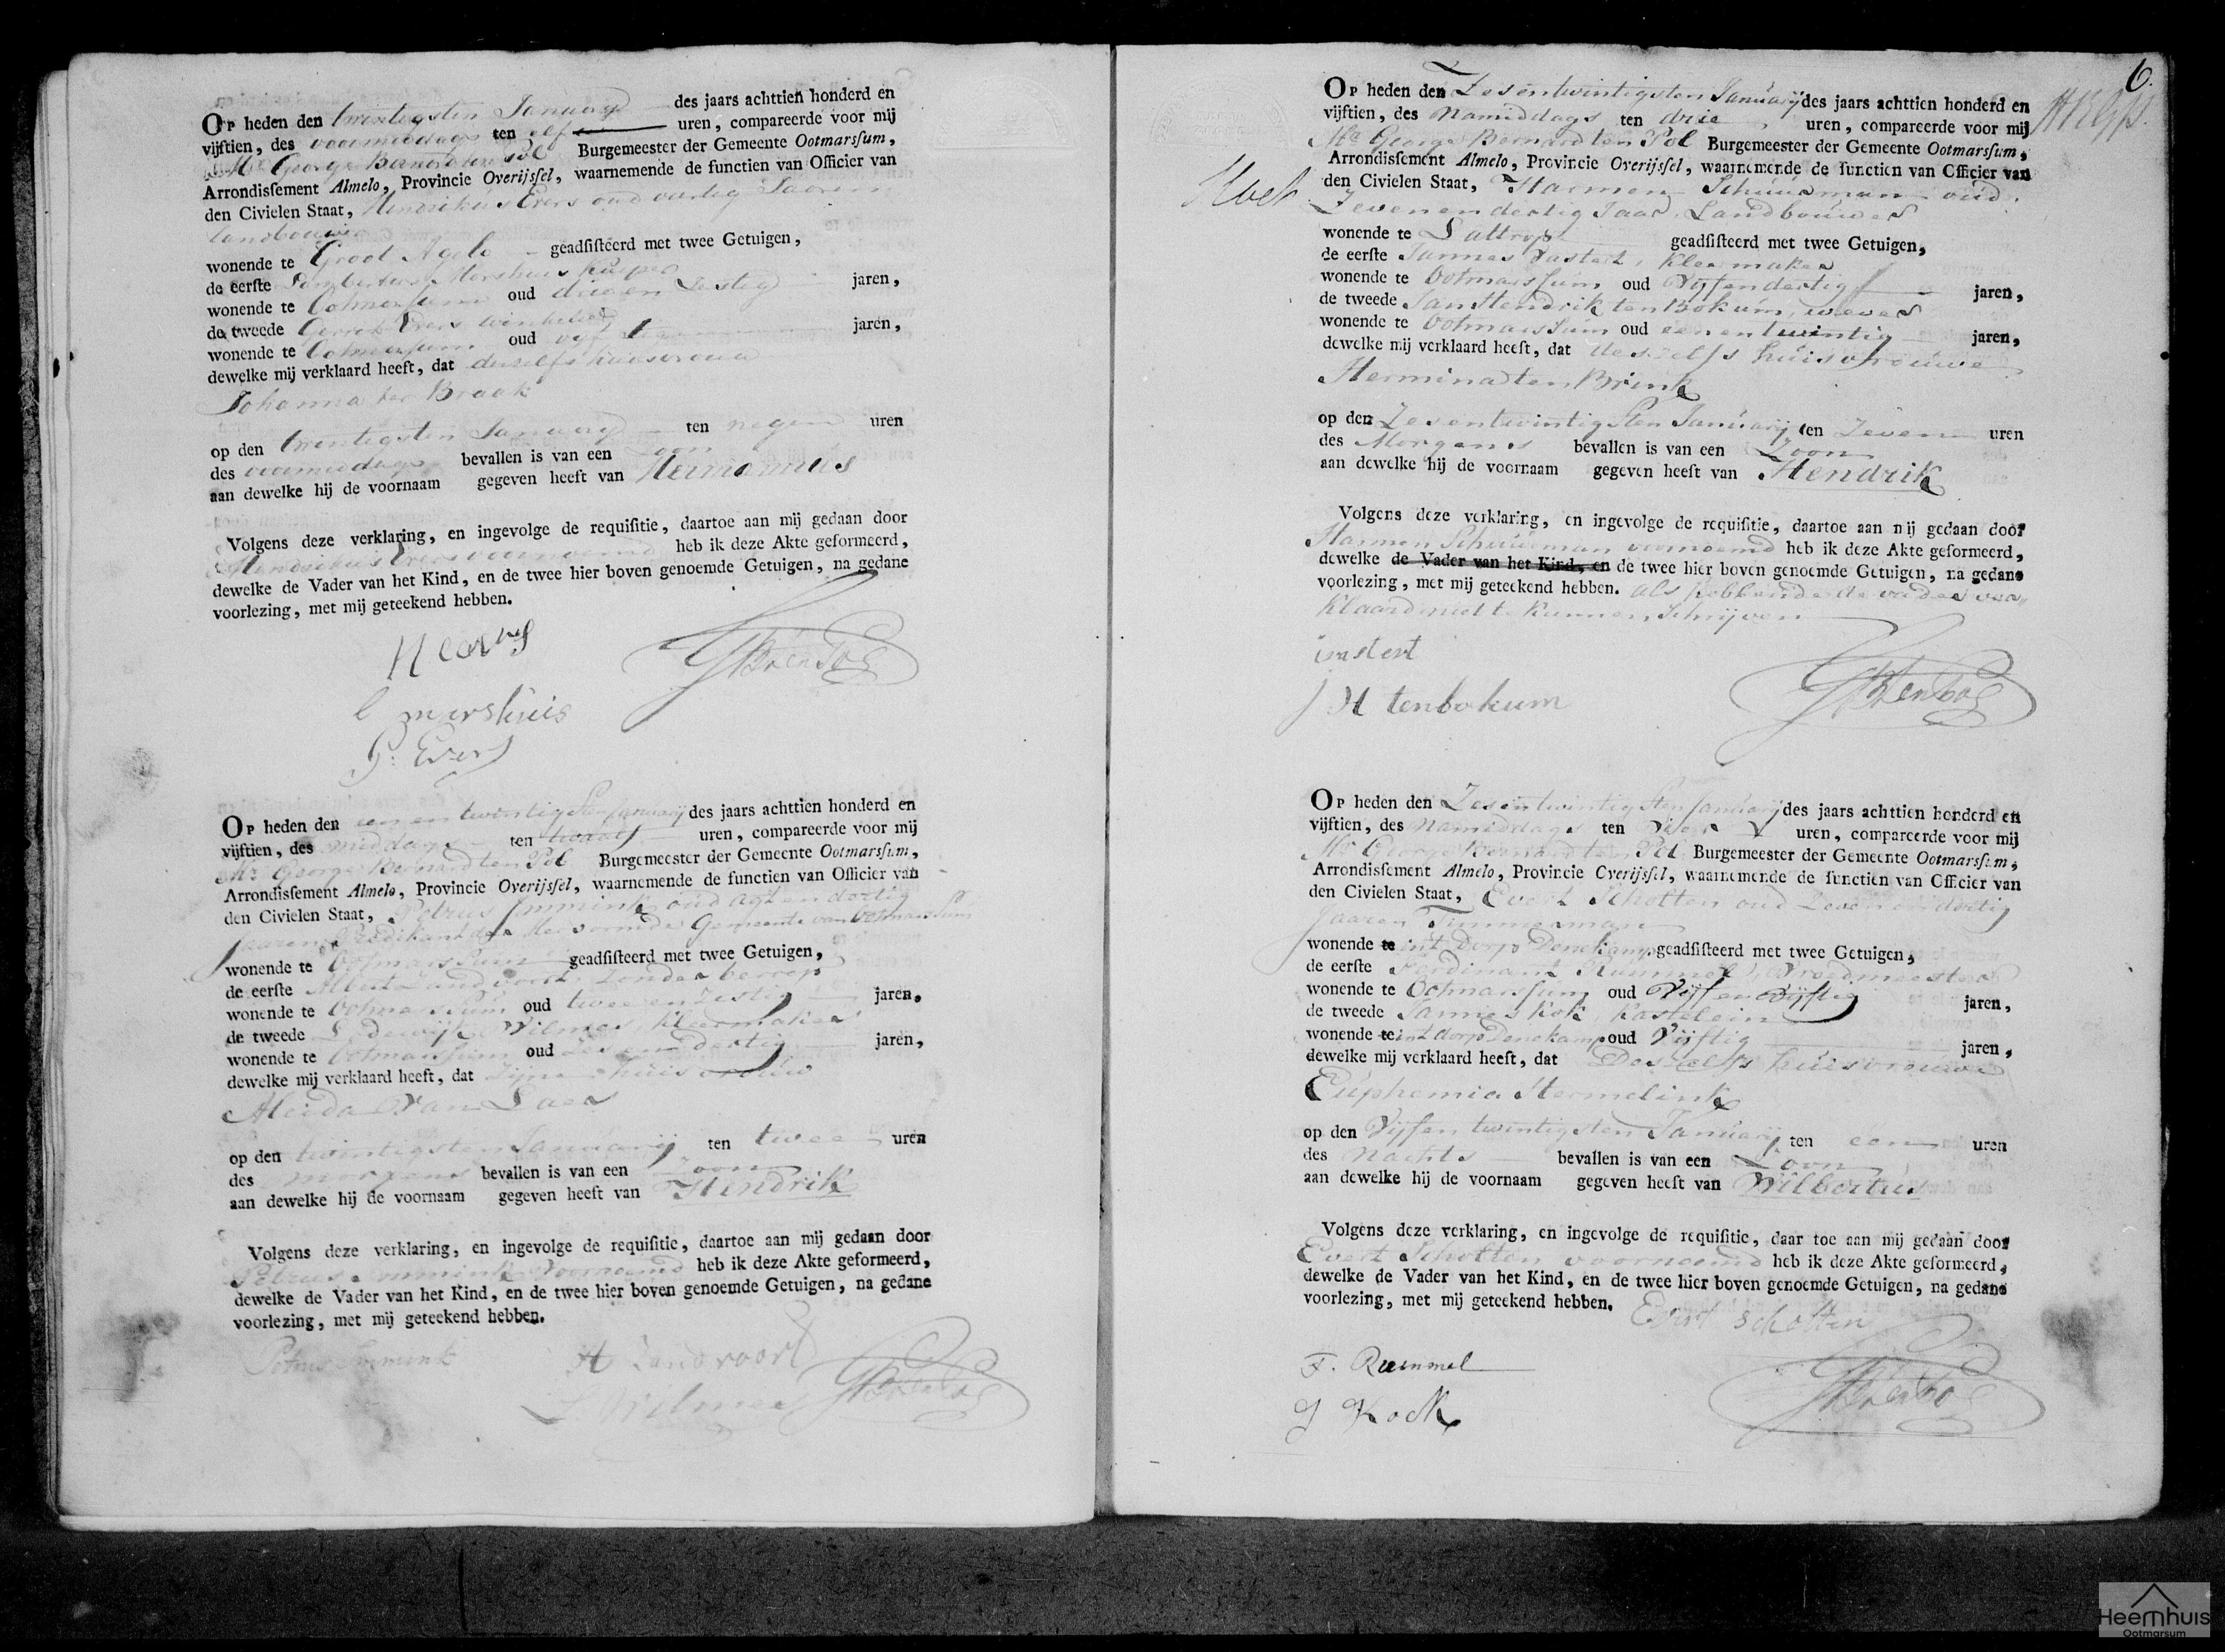 Op heden den twintigsten January des jaars achttien honderd en
vijftien, des voormiddags ten elf uren, compareerde voor mij
Mr George Bernard ten Pol Burgemeester der Gemeente Ootmarssum,
Arrondissement Almelo, Provincie Overijssel, waarnemende de functien van Officier van
den Civielen Staat, Hendrikus Evers oud veertig Jaaren
landbouwer
wonende te Groot Agelo geadsisteerd met twee Getuigen,
de eerste Lambertus Morshuis kuiper
wonende te Ootmarssum oud drie en zestig jaren,
de tweede Gerrit Evers
wonende te Ootmarssum oud vijf jaren,
dewelke mij verklaard heeft, dat deszelfs huisvrouw
Johanna ter Braak
op den twintigsten January ten negen uren
des voormiddags bevallen is van een zoon
aan dewelke hij de voornaam gegeven heeft van Hermannus
Volgens deze verklaring, en ingevolge de requisitie, daartoe aan mij gedaan door
Hendrikus Evers voornoemd heb ik deze Akte geformeerd,
dewelke de Vader van het Kind, en de twee hier boven genoemde Getuigen, na gedane
voorlezing, met mij geteekend hebben.
GBtenPol
l morshuis
G: Evers
Op heden den een en twintigsten Januarij des jaars achttien honderd en
vijftien, des middags ten twaalf uren, compareerde voor mij
Mr George Bernard ten Pol Burgemeester der Gemeente Ootmarssum,
Arrondissement Almelo, Provincie Overijssel, waarnemende de functien van Officier van
den Civielen Staat, Petrus Immink oud agt en dertig
Jaaren Predikant der Hervormde Gemeente van Ootmarssum
wonende te Ootmarssum geadsisteerd met twee Getuigen,
de eerste Albert Zandvoort zonder beroep
wonende te Ootmarssum oud twee en zestig jaren,
de tweede Lodewijk Wilmes, kleermaker
wonende te Ootmarssum oud zes en dertig jaren,
dewelke mij verklaard heeft, dat zijne huisvrouw
Aleida Van Laer
op den twintigsten Januarij ten twee uren
des morgens bevallen is van een Zoon
aan dewelke hij de voornaam gegeven heeft van Hendrik
Volgens deze verklaring, en ingevolge de requisitie, daartoe aan mij gedaan door
Petrus Immink voornoemd heb ik deze Akte geformeerd,
dewelke de Vader van het Kind, en de twee hier boven genoemde Getuigen, na gedane
voorlezing, met mij geteekend hebben.
Petrus Immink A Zandvoort
L. Wilmes GBtenPol
6.
Op heden den Zesentwintigsten Januarij des jaars achttien honderd en
vijftien, des Namiddags ten drie uren, compareerde voor mij
Mr George Bernard ten Pol Burgemeester der Gemeente Ootmarssum,
Arrondissement Almelo, Provincie Overijssel, waarnemende de functien van Officier van
den Civielen Staat, Harmen Schuurman oud
Zevenendertig Jaar, Landbouwer
wonende te Lattrop geadsisteerd met twee Getuigen,
de eerste Jannes Vastert, Kleermaker
wonende te Ootmarssum, oud Vijfendertig jaren,
de tweede Jan Hendrik ten Bokum, wever
wonende te Ootmarssum oud een en twintig jaren,
dewelke mij verklaard heeft, dat deszelfs huisvrouwe
Hermina ten Brink
op den Zesentwintigsten Januarij ten Zeven uren
des Morgens bevallen is van een Zoon
aan dewelke hij de voornaam gegeven heeft van Hendrik
Volgens deze verklaring, en ingevolge de requisitie, daartoe aan mij gedaan door
Harmen Schuurman voornoemd heb ik deze Akte geformeerd,
dewelke de Vader van het Kind, en de twee hier boven genoemde Getuigen, na gedane
voorlezing, met mij geteekend hebben. als hebbende de vader ver
klaard niet te kunnen Schrijven
J H tenbokum GBtenPol
Op heden den Zesentwintigsten Januarij des jaars achttien honderd en
vijftien, des Namiddags ten vier uren, compareerde voor mij
Mr George Bernard ten Pol Burgemeester der Gemeente Ootmarssum,
Arrondissement Almelo, Provincie Overijssel, waarnemende de functien van Officier van
den Civielen Staat, Evert Scholten oud Zevenendertig
Jaaren Timmerman
wonende te int Dorp Denekamp geadsisteerd met twee Getuigen,
de eerste Ferdinant Rummel, Vroedmeester
wonende te Ootmarssum oud Vijf en Vijftig jaren,
de tweede Jannes Kok, Kastelein
wonende te int dorp Denekamp oud Vijftig jaren,
dewelke mij verklaard heeft, dat Deszelfs huisvrouwe
Euphemia Hermelink
op den Vijfen twintigsten Januarij ten een uren
des Nachts bevallen is van een Zoon
aan dewelke hij de voornaam gegeven heeft van Wilbertus
Volgens deze verklaring, en ingevolge de requisitie, daar toe aan mij gedaan door
Evert Scholten voornoemd heb ik deze Akte geformeerd,
dewelke de Vader van het Kind, en de twee hier boven genoemde Getuigen, na gedane
voorlezing, met mij geteekend hebben. Evert Scholten
F. Rummel
J Kock GBtenPol
Heemhuis
Ootmarsum